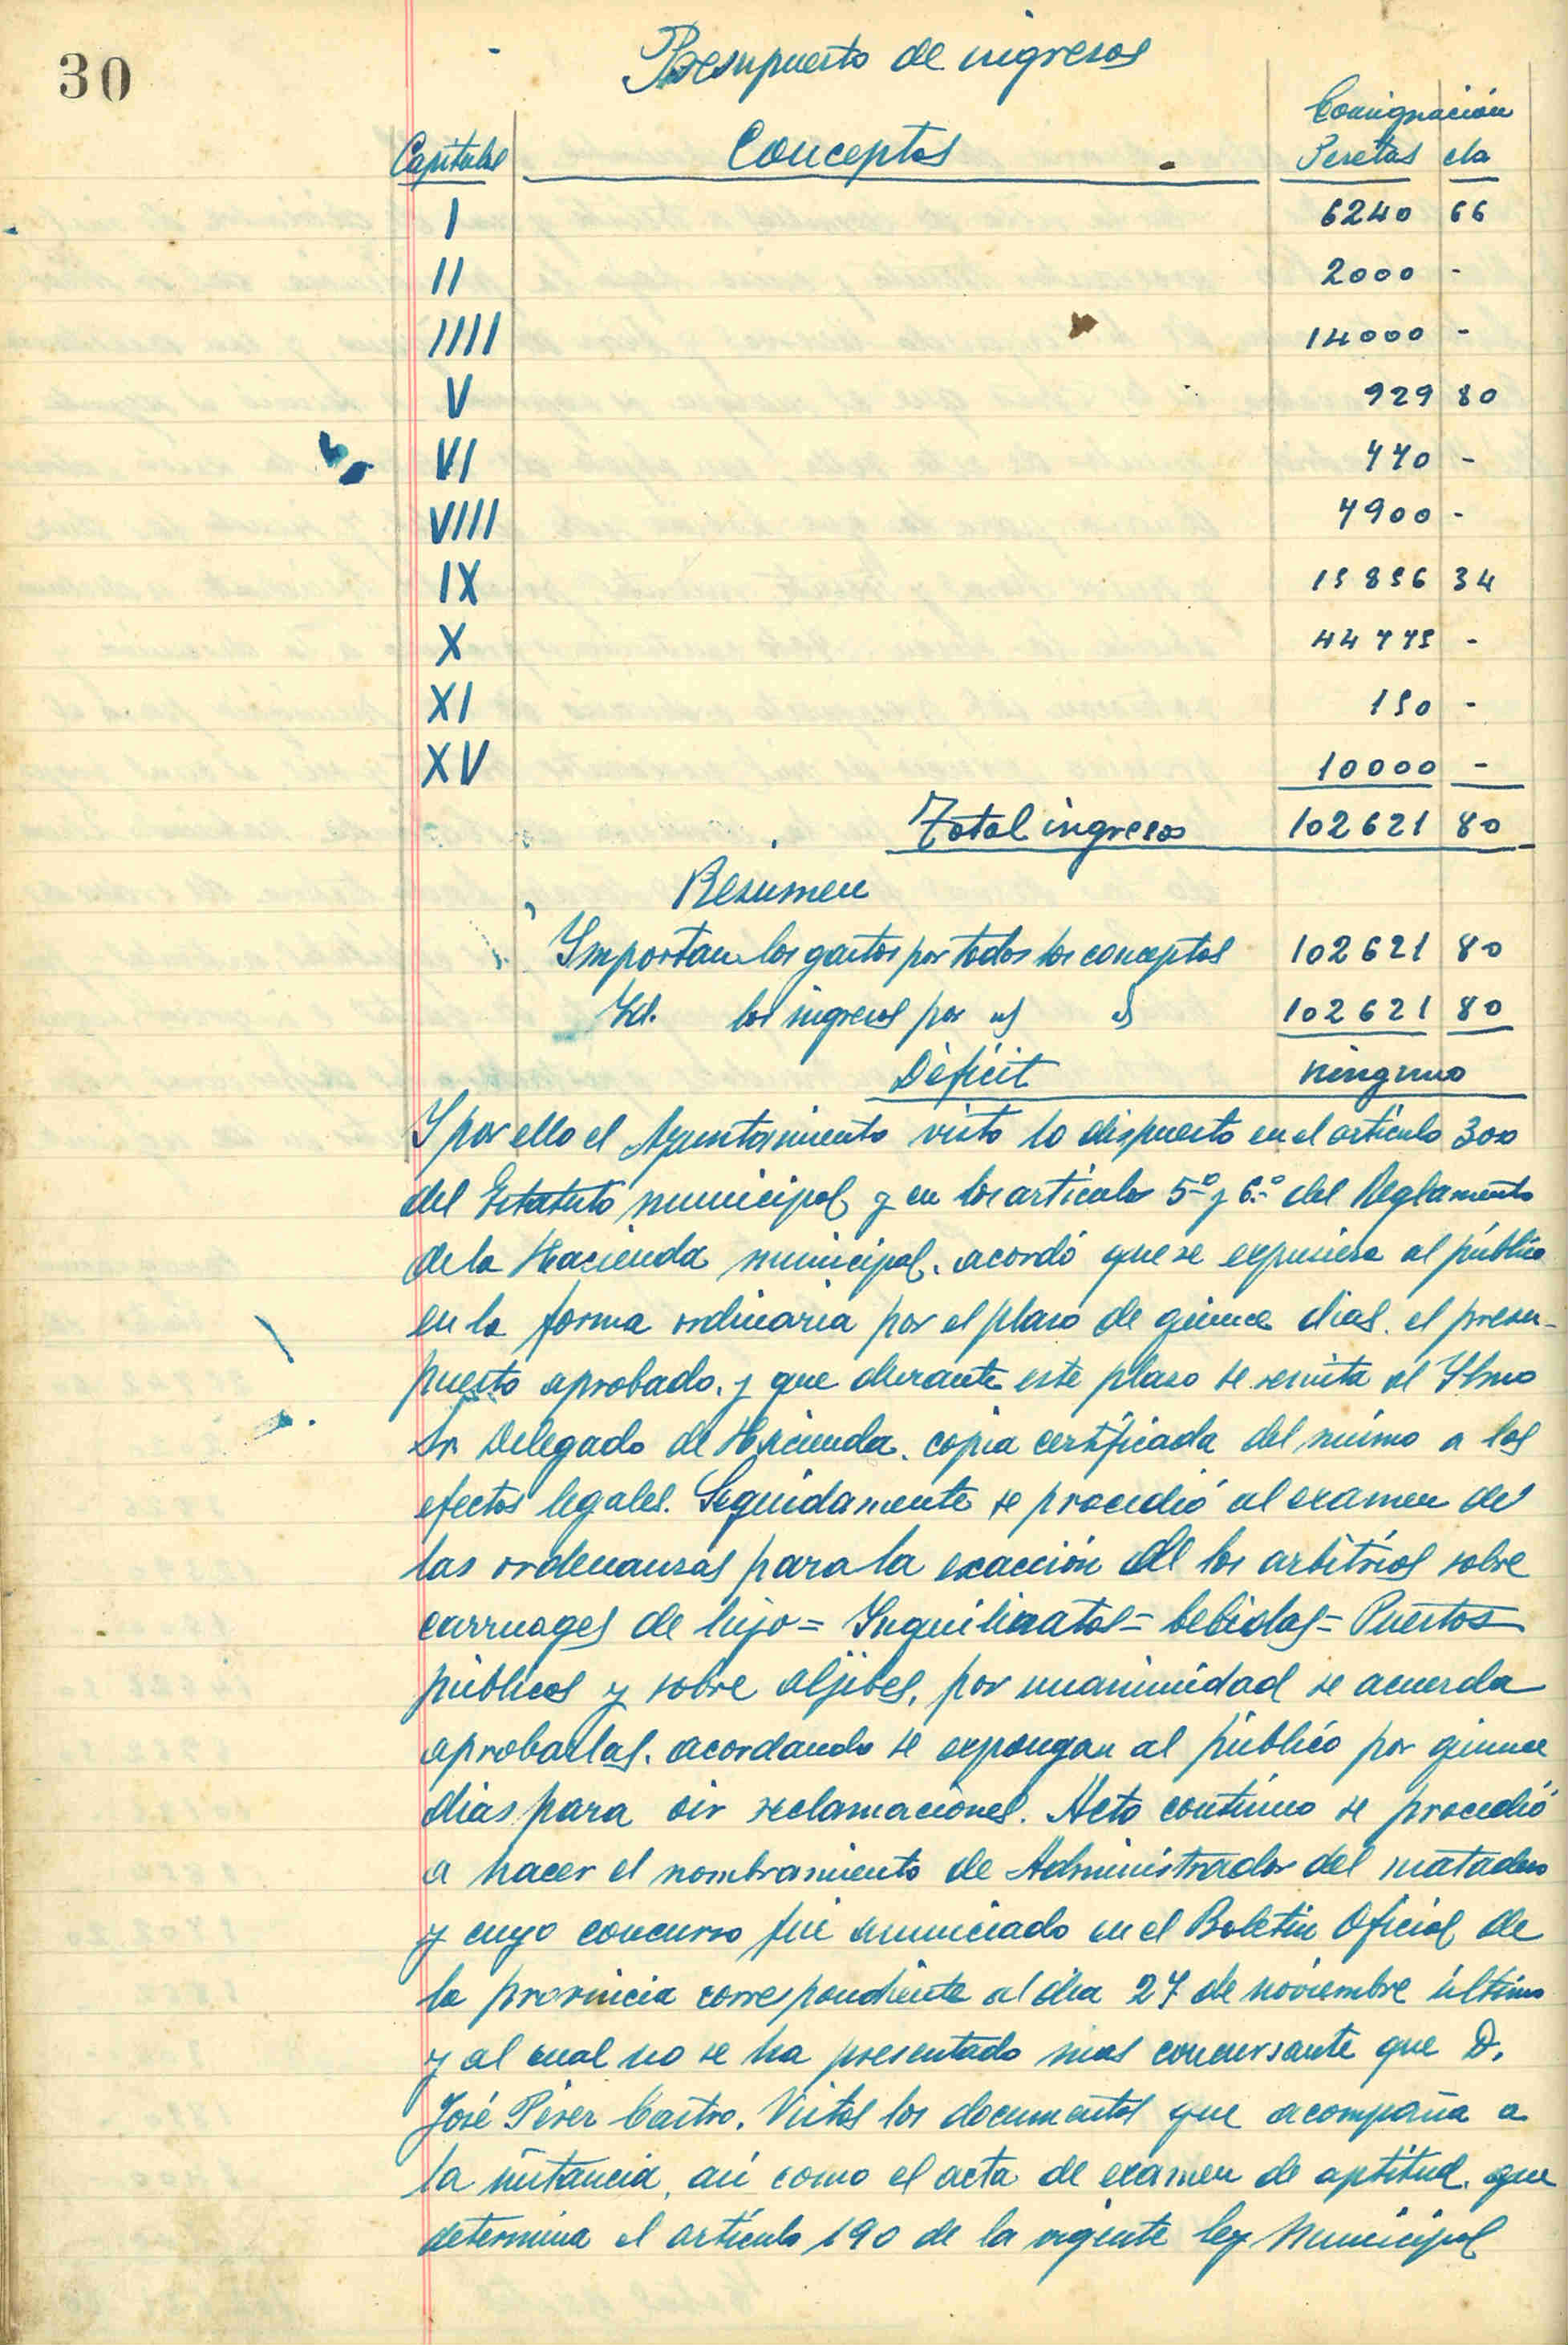 30
Presupuesto de ingresos
Consignación
Capítulos Conceptos Pesetas cts
I 6240 66
II 2000 -
IIII 14000 -
V 929 80
VI 770 -
VIIII 7900 -
IX 15856 34
X 44775 -
XI 150 -
XV 10000 -
Total ingresos 102621 80
Resumen
Importan los gastos por todos los conceptos 102621 80
Id. los ingresos por id id 102621 80
Déficit ninguno
Y por ello el Ayuntamiento visto lo dispuesto en el artículo 300
del Estatuto municipal y en los artículos 5º y 6º del Reglamento
de la Hacienda municipal, acordó que se expusiera al público
en la forma ordinaria por el plazo de quince dias, el presu-
puesto aprobado, y que durante este plazo se remita al Ilmo
Sr. Delegado de Hacienda, copia certificada del mismo a los
efectos legales. Seguidamente se procedió al examen de
las ordenanzas para la exacción de los arbitrios sobre
carruages de lujo = Inquilinatos = bebidas = Puestos
públicos y sobre aljibes, por unanimidad se acuerda
aprobarlas, acordando se expongan al público por quince
dias para oir reclamaciones. Acto contínuo se procedió
a hacer el nombramiento de Administrador del matadero
y cuyo concurso fué anunciado en el Boletin Oficial de
la provincia correspondiente al dia 27 de noviembre último
y al cual no se ha presentado mas concursante que D.
José Pérez Castro. Vistos los documentos que acompaña a
la instancia, así como el acta de examen de aptitud, que
determina el artículo 190 de la vigente ley Municipal